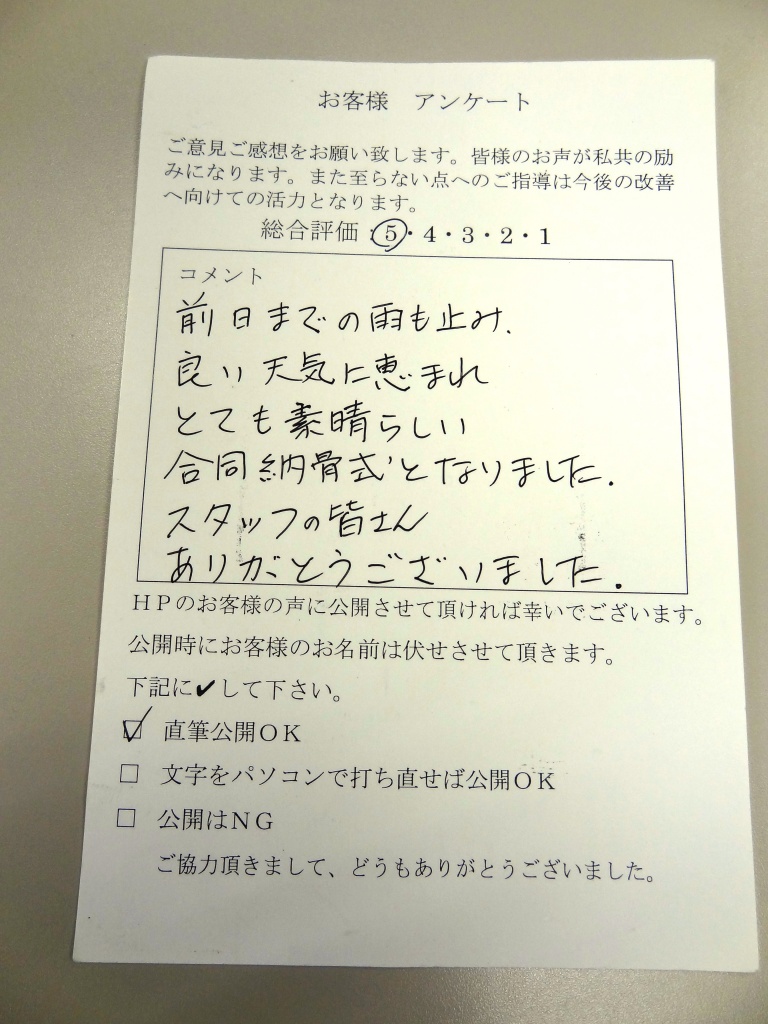 お客様　アンケート
ご意見ご感想をお願い致します。皆様のお声が私共の励
みになります。また至らない点へのご指導は今後の改善
へ向けての活力となります。
総合評価：5・4・3・2・1
コメント
前日までの雨も止み、
良い天気に恵まれ
とても素晴らしい
合同納骨式となりました.
スタッフの皆さん
ありがとうございました.
ＨＰのお客様の声に公開させて頂ければ幸いでございます。
公開時にお客様のお名前は伏せさせて頂きます。
下記に✔して下さい。
☑ 直筆公開ＯＫ
□ 文字をパソコンで打ち直せば公開ＯＫ
□ 公開はＮＧ
ご協力頂きまして、どうもありがとうございました。